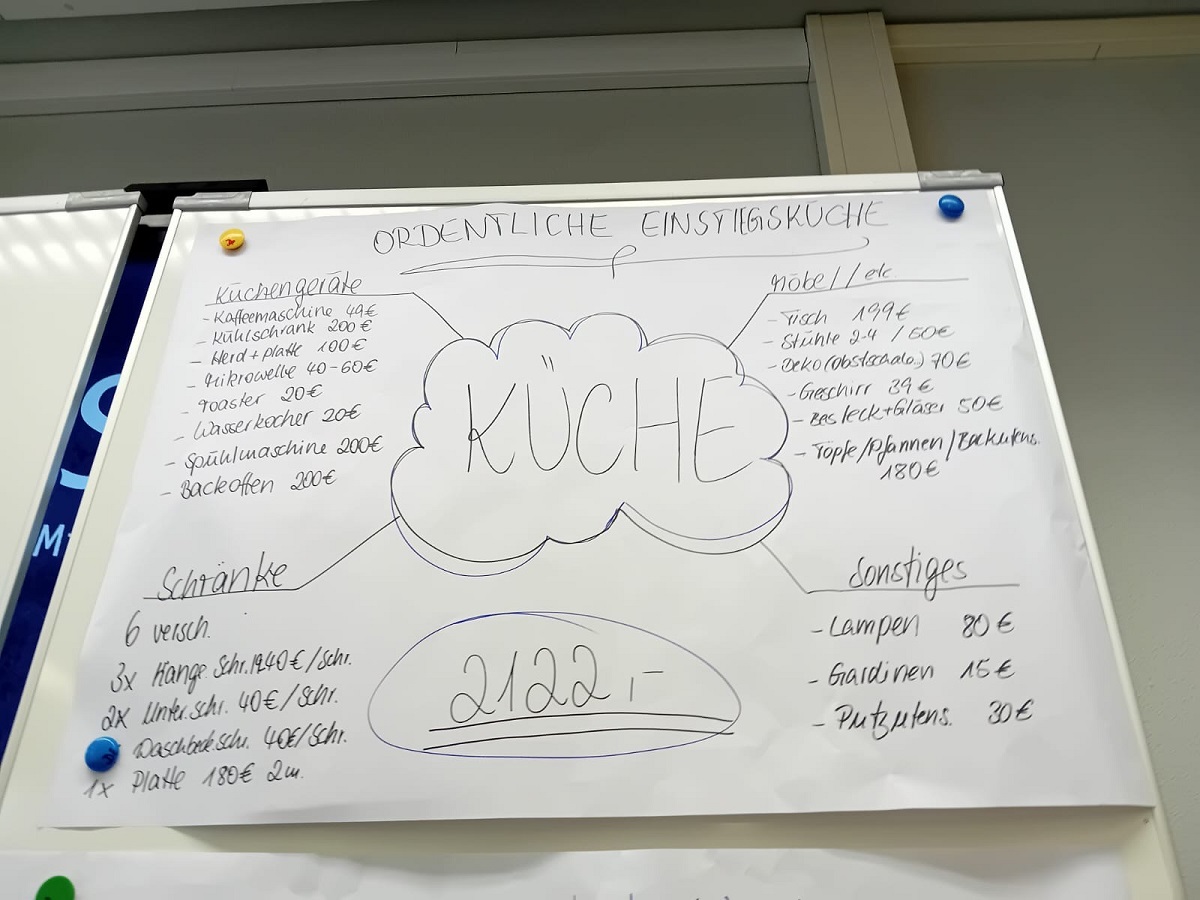 ORDENTLICHE EINSTIEGSKÜCHE
Küchengeräte
- Kaffeemaschine 49€
- Kühlschrank 200€
- Herd + platte 100€
- Mikrowelle 40-60€
- Toaster 20€
- Wasserkocher 20€
- Spühlmaschine 200€
- Backoffen 200€
Möbel / etc
- Tisch 199€
- Stühle 2-4 / 50€
- Deko (obstschale.) 70€
- Geschirr 39€
- Besteck + Gläser 50€
- Töpfe/Pfannen/Backutens.
180€
KÜCHE
Schränke
6 versch.
3x Hange. Schr. 40€/Schr.
2x Unter.schr. 40€/Schr.
40€/Schr.
1x Platte 180€ 2m.
2122,-
Sonstiges
- Lampen 80€
- Gardinen 15€
- Putzutens. 30€